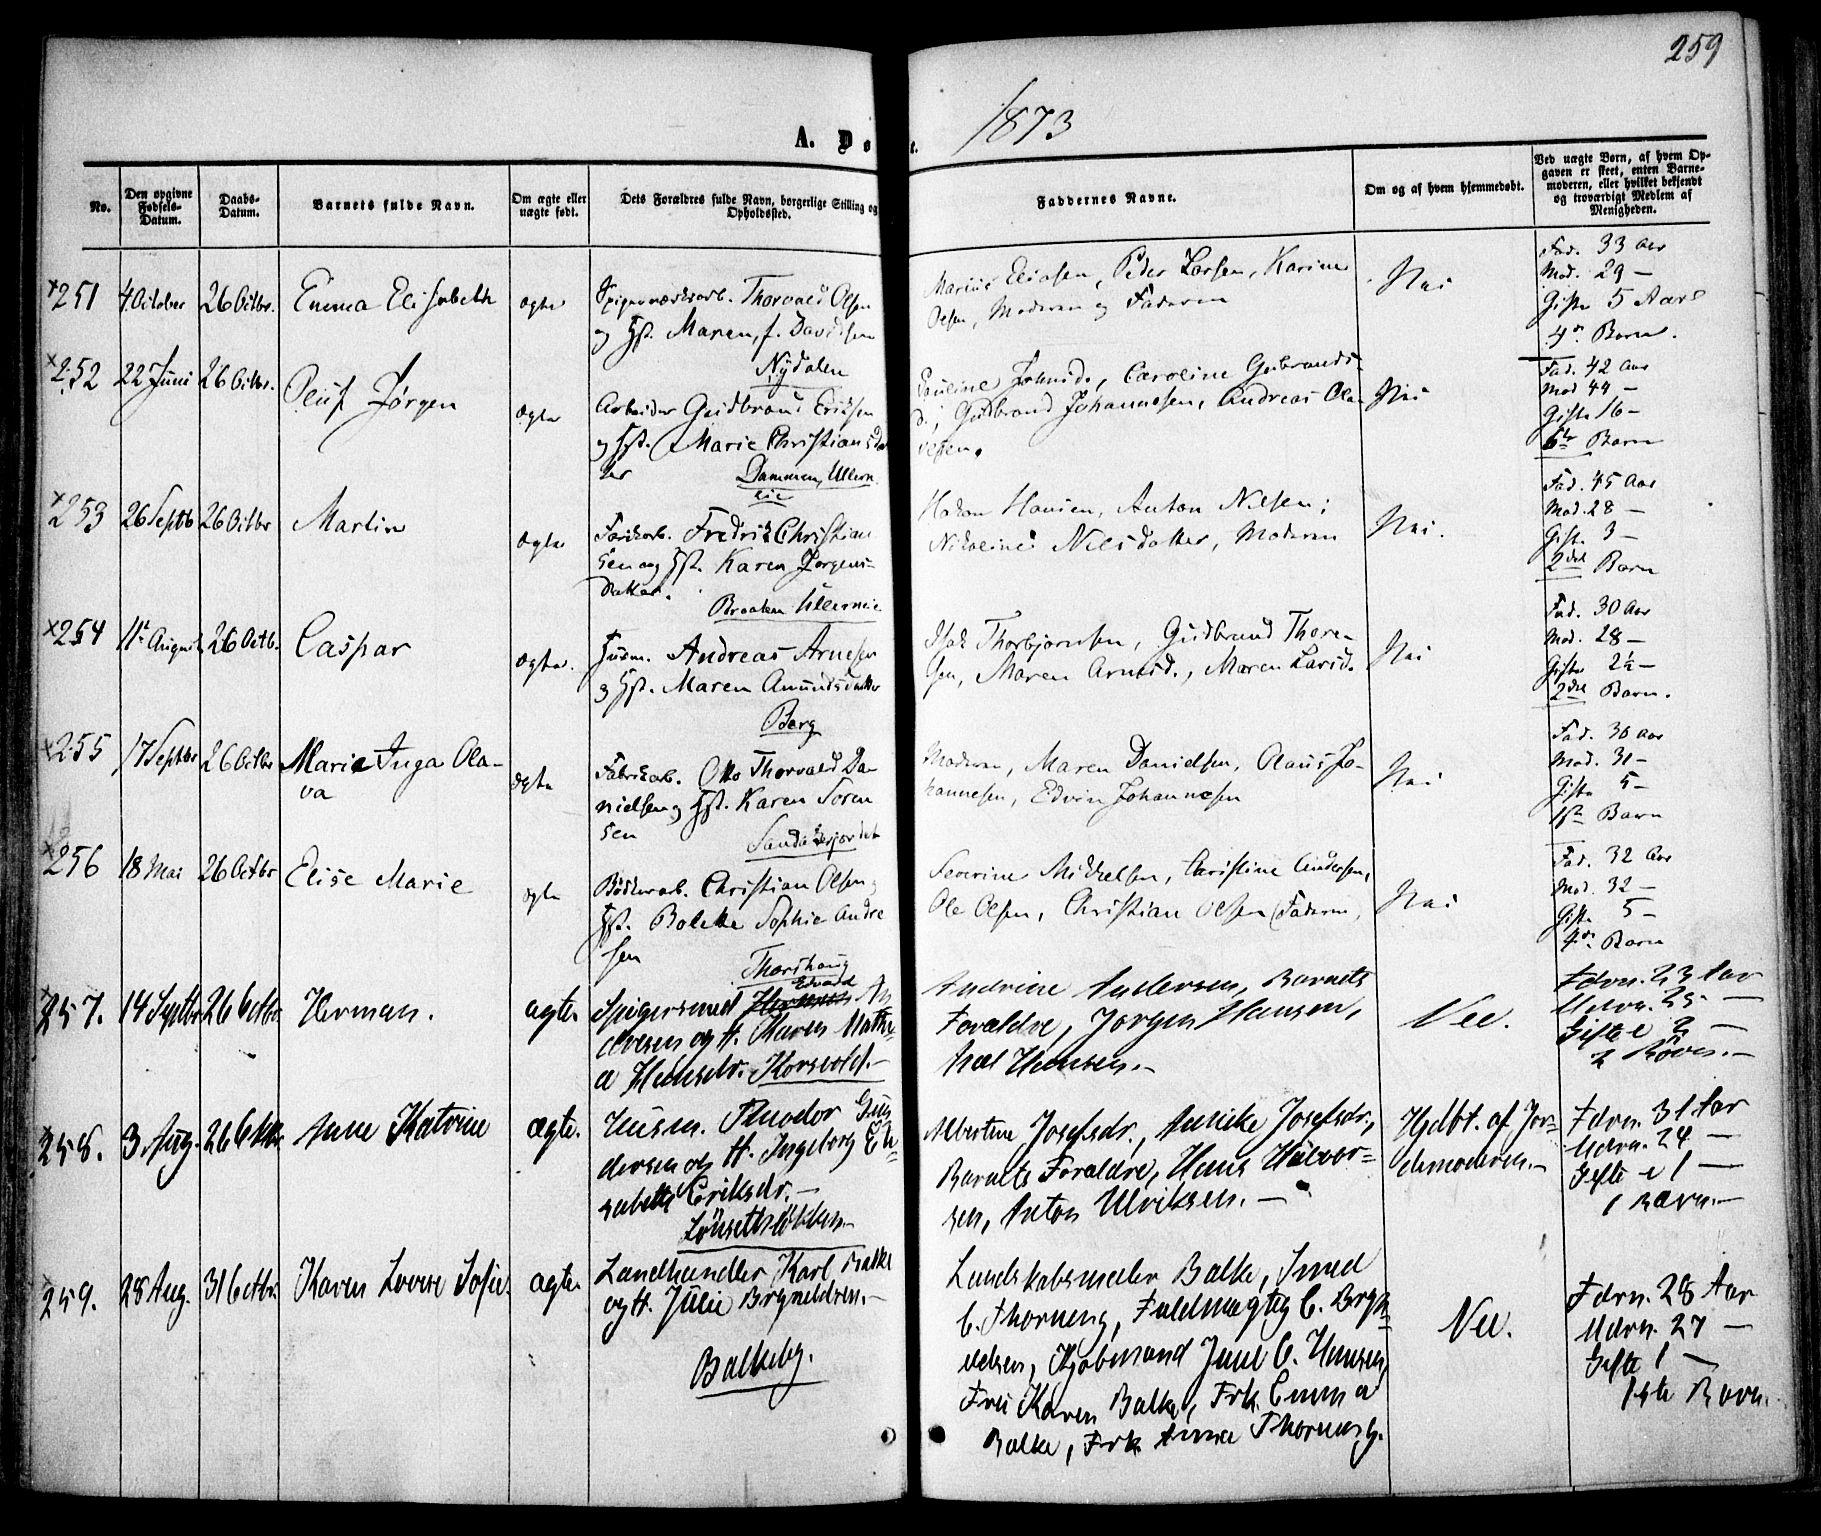 259
1873
A. Dø te.
No.
Den opgivne Fødsels-Datum.
Daabs-Datum.
Barnets fulde Navn.
Om ægte eller uægte født.
Dets Forældres fulde Navn, borgerlige Stilling og Opholdsted.
Faddernes Navne.
Om og af hvem hjemmedøbt.
Ved uægte Børn, af hvem Op-
gaven er skeet, enten Barne-
moderen, eller hvilket bekjendt
og troværdigt Medlem af
Menigheden.
251 4 October 26 Octbr. Emma Elisabeth ægte
Spigerværksarb. Thorvald Olsen
og Hst. Maren, f. Davidsen
Nydalen
Marius Eliasen, Peder Larsen, Karine
Olsen, Moderen og Faderen
Nei
Fad. 33 Aar
Mod. 29 —
Gifte 5 Aar
4de Barn.
252 22 Juni 26 Octbr. Oluf Jørgen ægte
Arbeider Gudbrand Eriksen
og Hst. Marie Christiansdat
ter Dammen, Ullern
eie
Pauline Johnsd., Caroline Gubrands-
d., Gudbrand Johannesen, Andreas Ola-
vesen.
Nei
Fad. 42 Aar
Mod 44 —
Gifte 16 —
6te Barn
253 26 Septb 26 Octbr Martin ægte
Fredrik Christian
sen og Hst. Karen Jørgens-
datter.
Braaten Ullerneie
Hansen, Anton Nilsen;
Nikoline Nilsdatter, Moderen
Nei.
Fad. 45 Aar
Mod. 28 —
Gifte 3 —
2det Barn
254 11te August 26 Octb. Caspar ægte.
Husm. Andreas Arnesen
og Hst. Maren Amundsdatter
Berg
Thorbjørnsen, Gudbrand Thore-
sen, Maren Arnesd., Maren Larsd.
Nei
Fad. 30 Aar
Mod. 28 —
Gifte 2½ —
2det Barn.
255 17 Septbr 26 Octbr Marie Inga Ola-
va
ægte
Fabrikarb. Otto Thorvald Da-
nielsen og Hst. Karen Soren
sen
Moderen, Maren Danielsen, Olaus Jo-
hannesen, Edvin Johannesen
Nei
Fad. 30 Aar
Mod. 31 —
Gifte 5 —
1ste Barn
256 18 Mai 26 Octbr Elise Marie ægte
Bødkerarb. Christian Olsen og
Hst. Bolette Sophie Andre
sen
Thorshaug
Severine Mikkelsen, Christine Andersen,
Ole Olsen, Christian Olsen (Faderen,
Nei
Fad. 32 Aar
Mod. 32 —
Gifte 5 —
4de Barn
257. 14 Septbr 26 Octbr. Herman. ægte.
Edvard
Spigersmed Herman An
dersen og H. Karen Mathe-
a Hansdr. Korsvold.-
Andrine Andersen, Barnets
Forældre, Jorgen Hansen,
Axel Hansen.-
Nei.
Fdrn. 23 Aar
Mdrn. 25. —
Gifte i 2 —
2 Børn.-
258. 3 Aug. 26 Octbr. Anne Katrine ægte.
Husm. Theodor Gun
dersen og H. Ingeborg E-
sabeth Eriksdr.-
Albertine Josefsdr., Anneke Josefsdr.,
Barnets Forældre, Hans Halvor-
sen, Anton Ulriksen.-
Hjdbt. af Jor-
demoderen.-
Fdrn. 31 Aar
Mdrn. 24 —
Gifte i 1 —
1 Barn.-
259. 28 Aug. 31 Octbr. Karen Lovise Sofie. ægte.
Landhandler Karl Balke
og H. Julie Bryneldsen.-
Balkeby.
Landskabsmaler Balke, Smed
C. Thorneng, Fuldmægtig C. Bryn-
eldsen, Kjøbmand Juul C. Hansen,
Fru Karen Balke, Frk. Emma
Balke, Frk. Anna Thorneng.
Nei.
Fdrn. 28 Aar
Mdrn. 27 —
Gifte 1 —
1ste Barn.